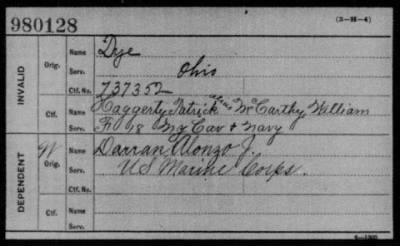 980128 (3-H-4)
INVALID
Orig. Name Dye
Serv. Ohio
Ctf. No. 737352
Ctf. Name Haggerty Patrick alias McCarthy William
Serv. F 18 Cav & Navy
DEPENDENT
W Orig. Name Darran Alonzo J.
Serv. US Marine Corps.
Ctf. No.
Ctf. Name
Serv.